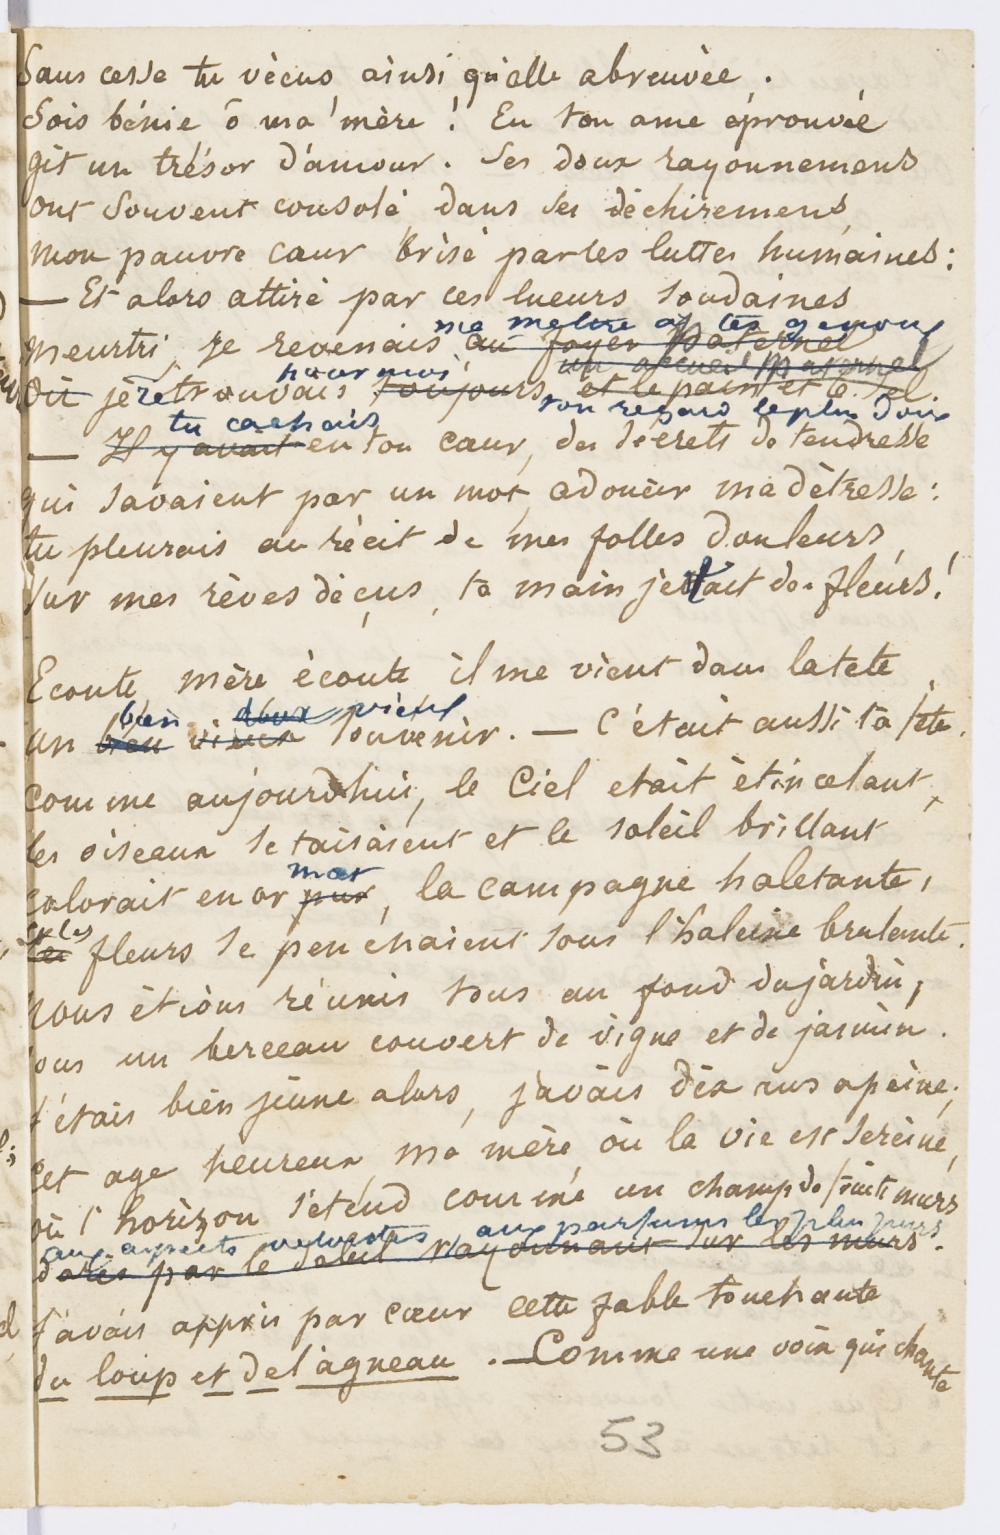 Sans cesse tu vécus ainsi qu'elle abreuvée.
Sois bénie ô ma mère ! En ton ame éprouvée
gît un trésor d'amour. Ses doux rayonnemens
ont souvent consolé dans ses déchiremens,
mon pauvre cœur brisé par les luttes humaines :
— Et alors attiré par ces lueurs soudaines
me mettre à tes genoux
meurtri, je revenais au foyer paternel
un accueil maternel
pour moi
Où je retrouvais toujours, et le pain et le sel.
ton regard le plus doux
tu cachais
— Il y avait en ton cœur, des secrets de tendresse
qui savaient par un mot, adoucir ma détresse :
tu pleurais au récit de mes folles douleurs,
sur mes rêves déçus, ta main jettait des fleurs !
Ecoute, mère écoute il me vient dans la tete
bien doux vieux
un beau vieux souvenir. — C'était aussi ta fête.
comme aujourd'hui, le Ciel etait étincelant,
les oiseaux se taisaient et le soleil brillant
mat
colorait en or pur, la campagne haletante,
et les
les fleurs se penchaient sous l'haleine brulante.
nous étions réunis tous au fond du jardin,
sous un berceau couvert de vigne et de jasmin.
J'étais bien jeune alors, j'avais dix ans a peine,
cet age heureux, ma mère, où la vie est sereine,
où l'horizon s'étend comme un champ de fruits murs
aux aspects veloutés aux parfums les plus purs
dorés par le soleil rayonnant sur les murs.
J'avais appris par cœur cette fable touchante
du loup et de l'agneau. — Comme une voix qui chante
53